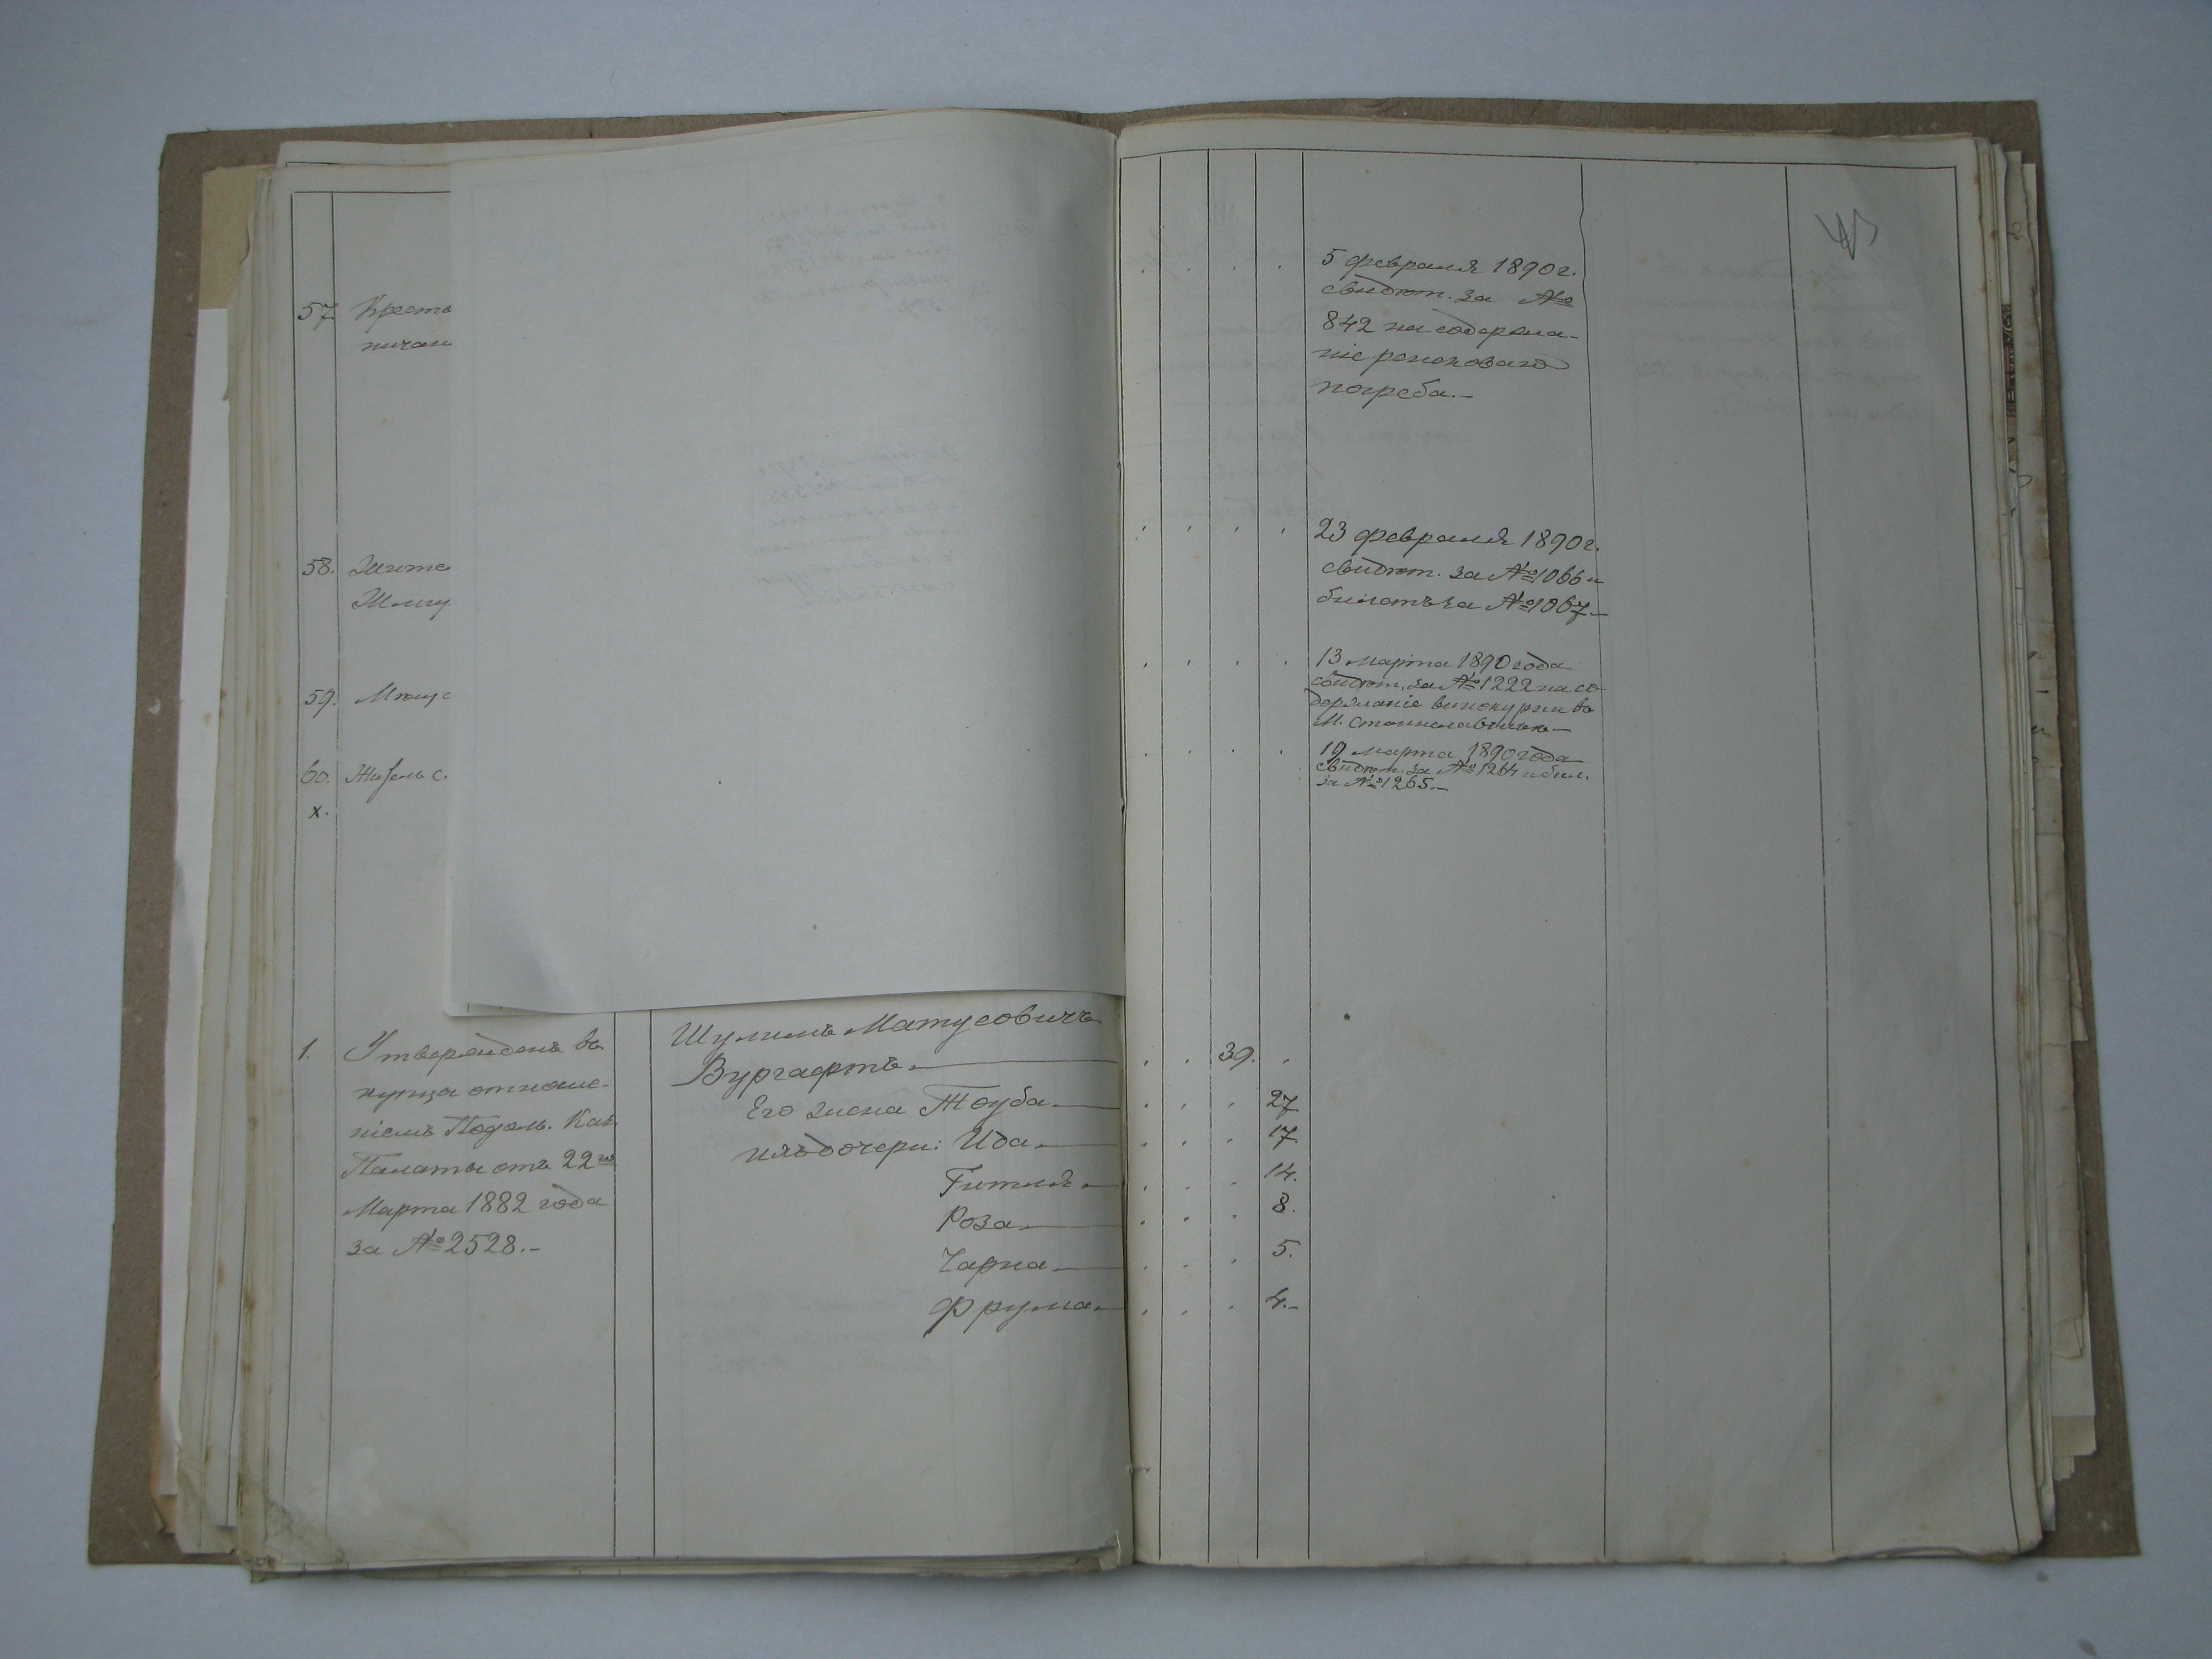 43
57. Кресть
5 февраля 1890 г.
свидѣт. за №
842 на содержа-
ніе ренсковаго
погреба.-
58. Жите
23 февраля 1890 г.
свидѣт. за № 1066 и
билетъ за № 1067.-
59. Мѣщ
13 марта 1890 года
свидѣт. за № 1222 на со-
держаніе винокурни въ
М. Станиславчикѣ.-
60. Житель с.
х.
19 марта 1890 года
свидѣт. за № 1264 и бил.
за № 1265.-
1. Утвержденъ въ
купца отноше-
ніемъ Подол. Каз.
Палаты отъ 22го
Марта 1882 года
за № 2528.-
Шулимъ Матусовичъ
Вургафтъ 39.
Его жена Тоуба 27
ихъ дочери: Ида 17.
Гитля 14.
Роза 8.
Чарна 5.
Фрума 4.-